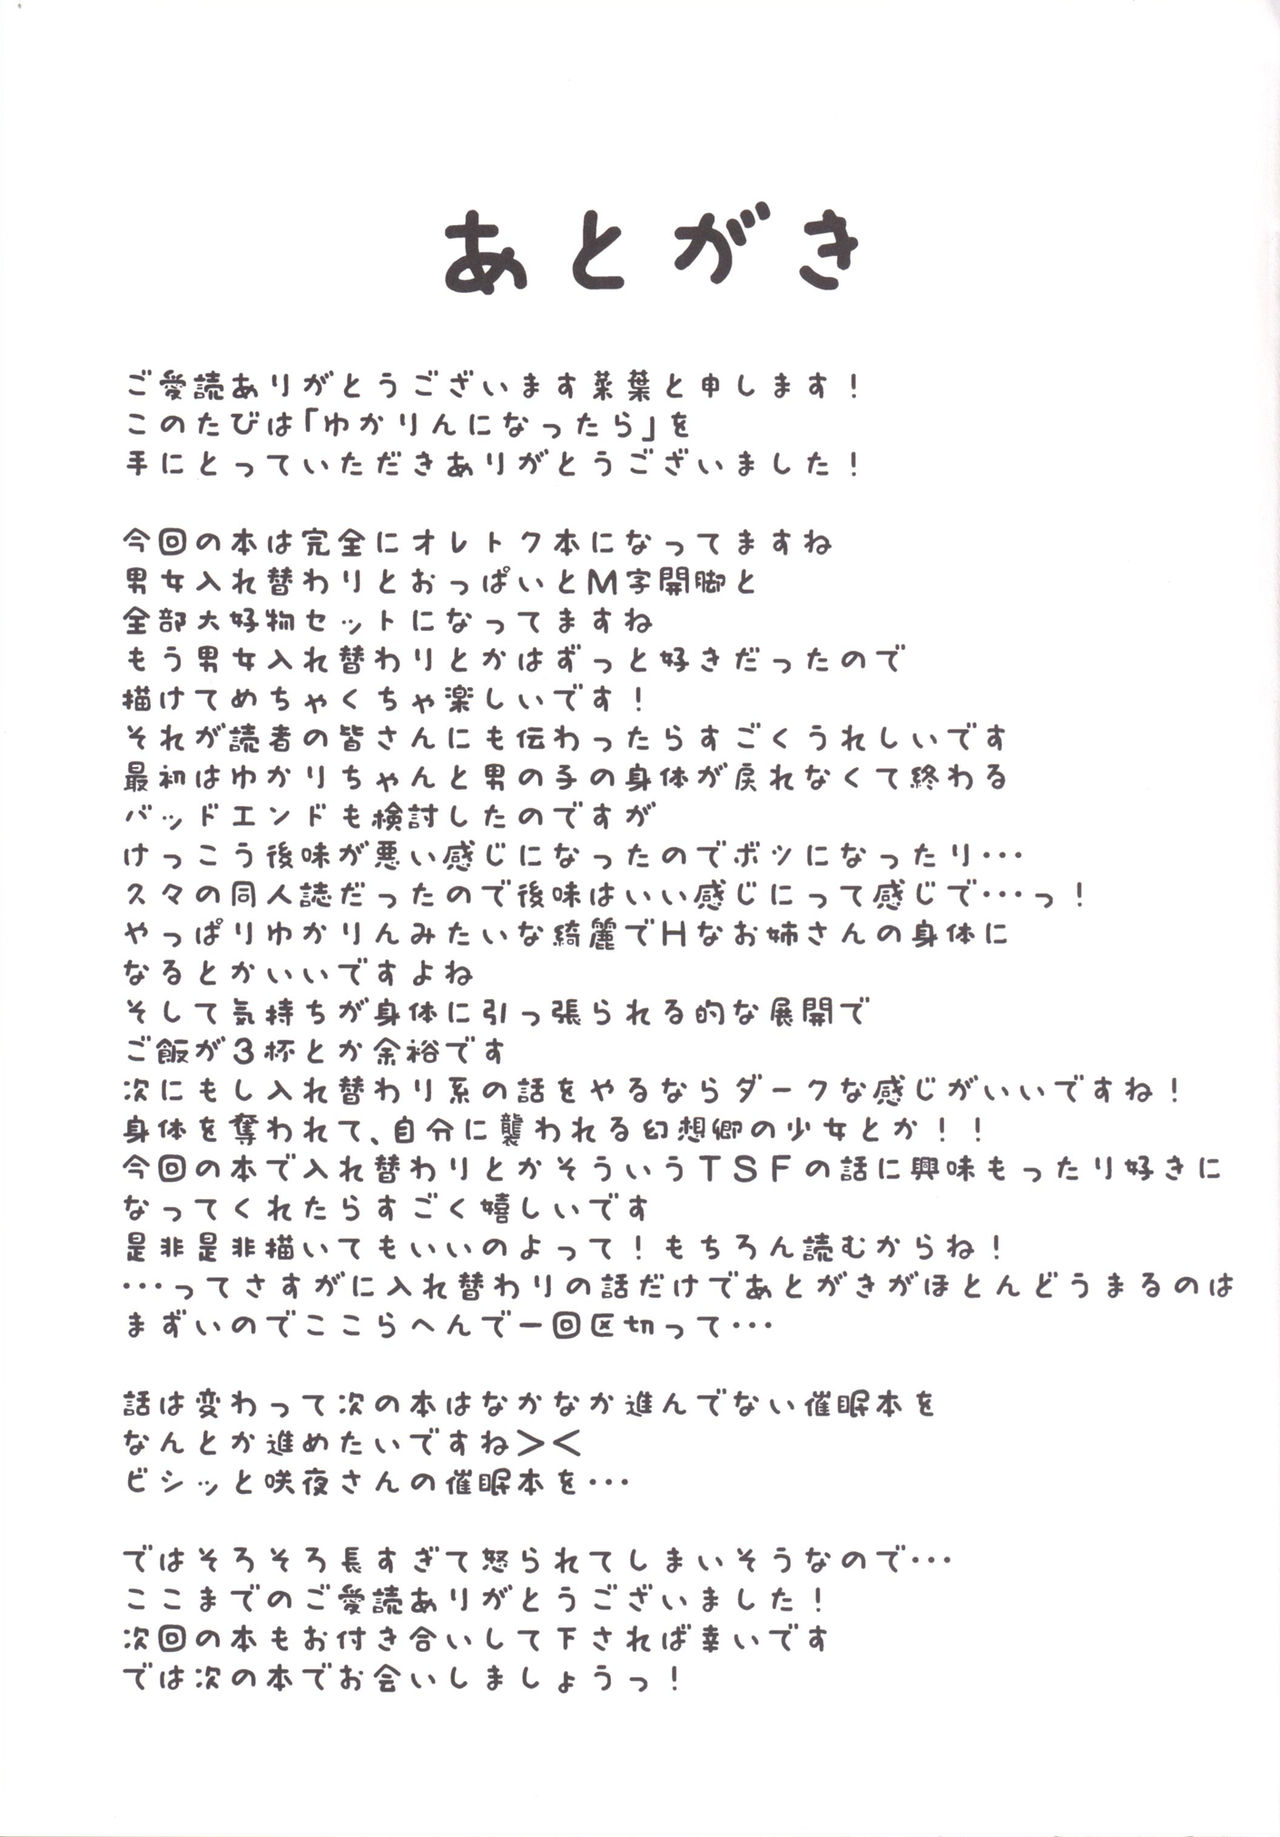 あとがき
ご愛読ありがとうございます菜葉と申します！
このたびは「ゆかりんになったら」を
手にとっていただきありがとうございました！
今回の本は完全にオレトク本になってますね
男女入れ替わりとおっぱいとＭ字開脚と
全部大好物セットになってますね
もう男女入れ替わりとかはずっと好きだったので
描けてめちゃくちゃ楽しいです！
それが読者の皆さんにも伝わったらすごくうれしいです
最初はゆかりちゃんと男の子の身体が戻れなくて終わる
バッドエンドも検討したのですが
けっこう後味が悪い感じになったのでボツになったり・・・
久々の同人誌だったので後味はいい感じにって感じで・・・っ！
やっぱりゆかりんみたいな綺麗でＨなお姉さんの身体に
なるとかいいですよね
そして気持ちが身体に引っ張られる的な展開で
ご飯が３杯とか余裕です
次にもし入れ替わり系の話をやるならダークな感じがいいですね！
身体を奪われて、自分に襲われる幻想郷の少女とか！！
今回の本で入れ替わりとかそういうＴＳＦの話に興味もったり好きに
なってくれたらすごく嬉しいです
是非是非描いてもいいのよって！もちろん読むからね！
・・・ってさすがに入れ替わりの話だけであとがきがほとんどうまるのは
まずいのでここらへんで一回区切って・・・
話は変わって次の本はなかなか進んでない催眠本を
なんとか進めたいですね＞＜
ビシッと咲夜さんの催眠本を・・・
ではそろそろ長すぎて怒られてしまいそうなので・・・
ここまでのご愛読ありがとうございました！
次回の本もお付き合いして下されば幸いです
では次の本でお会いしましょうっ！